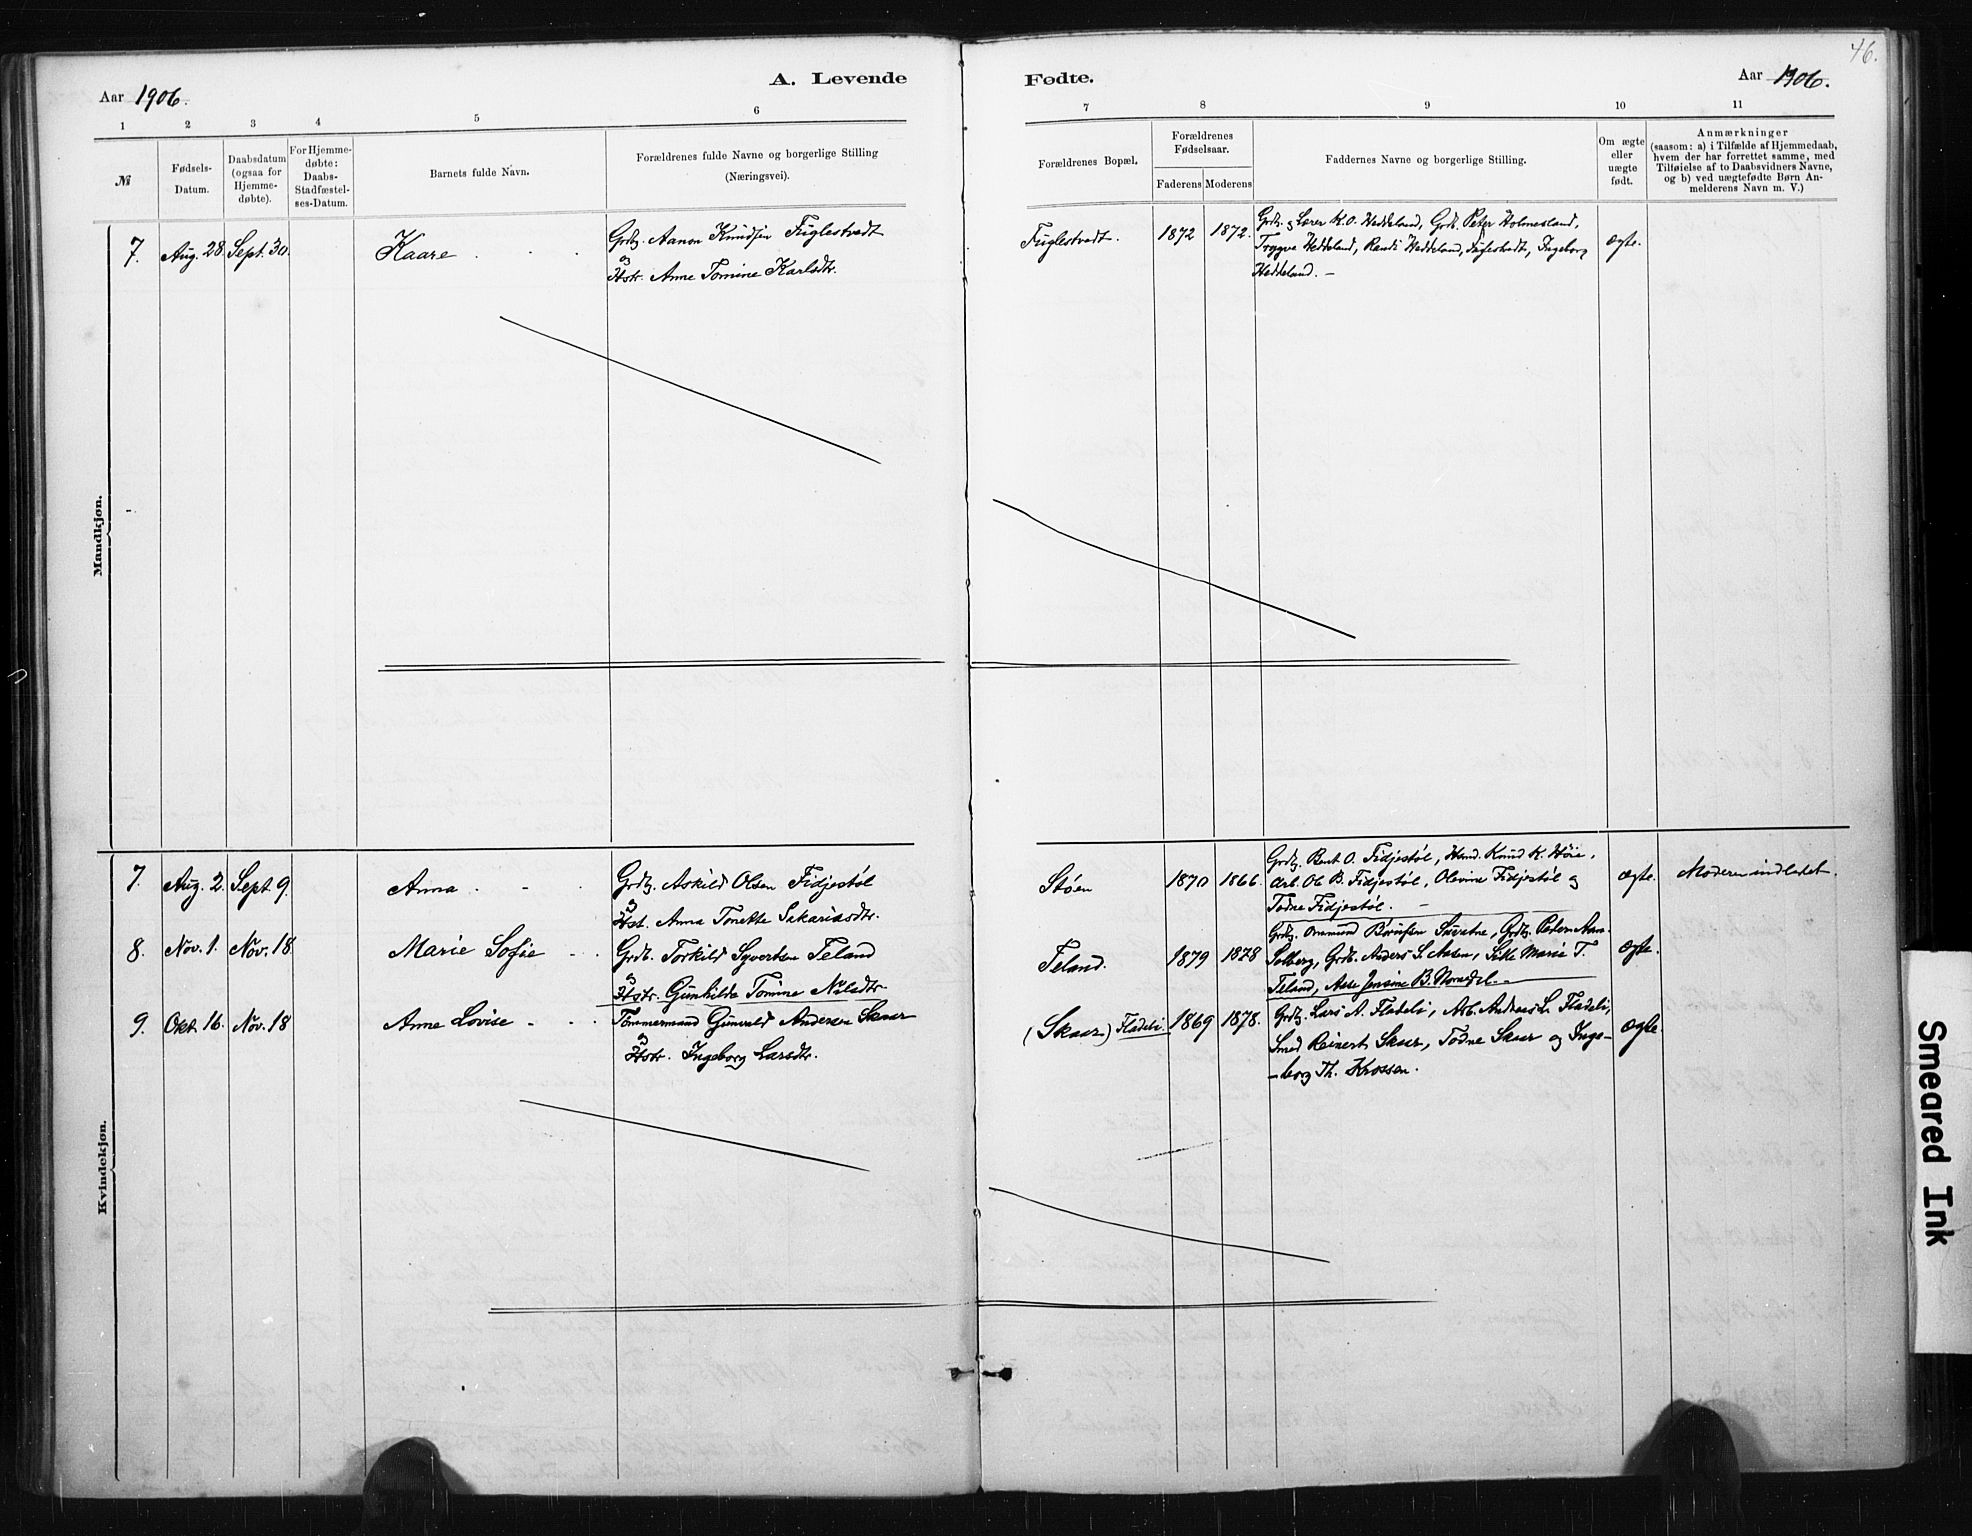 46.
A. Levende Fødte.
Aar 1906.
Aar 1906.
1 2 3 4 5 6 7 8 9 10 11
№
Fødsels-
Datum.
Daabsdatum
(ogsaa for
Hjemme-
døbte).
For Hjemme-
døbte:
Daabs-
Stadfæstel-
ses-Datum.
Barnets fulde Navn.
Forældrenes fulde Navne og borgerlige Stilling
(Næringsvei).
Forældrenes Bopæl.
Forældrenes
Fødselsaar.
Faderens Moderens
Faddernes Navne og borgerlige Stilling.
Om ægte
eller
uægte
født.
Anmærkninger
(saasom: a) i Tilfælde af Hjemmedaab,
hvem der har forrettet samme, med
Tilføielse af to Daabsvidners Navne,
og b) ved uægtefødte Børn An-
melderens Navn m. V.)
Mandkjøn.
7. Aug. 28 Sept. 30. Kaare
Grdbr. Aanon Knudsen Fuglestvedt
og
Hstr. Anne Tomine Karlsdtr.
Fuglestvedt. 1872 1872.
Grdbr. og Lærer K. O. Heddeland, Grdb. Peter Holmesland,
Trygve Heddeland, Randi Heddeland, Fuglestvedt, Ingeborg
Heddeland. –
Ægte.
Kvindekjøn.
7. Aug. 2. Sept. 9. Anna
Grdbr. Askild Olsen Fidjestøl
og
Hst. Anna Tonette Sakariasdtr.
Støen 1870 1866.
Grdbr. Bent O. Fidjestøl, Hand. Knud K. Høie,
Arb. Ole B. Fidjestøl, Olevine Fidjestøl og
Todne Fidjestøl. –
Ægte. Moderen indledet.
8. Nov. 1. Nov. 18 Marie Sofie
Grdb. Torkild Syvertsen Teland
og
Hstr. Gunhilde Tomine Nilsdtr.
Teland. 1879 1878
Solberg, Grdb. Anders S. Aasen, Marie T.
Teland, Aase Jensine B.
Ægte.
9. Okt. 16. Nov. 18 Anne Lovise
Tømmermand Gunvald Andersen Skaar
og
Hstr. Ingeborg Larsdtr.
(Skaar) Fladeli. 1869 1878.
Grdbr. Lars A. Fladeli, Arb. Andreas L. Fladeli,
Smed Reinert Skaar, Todne Skaar og Inge-
-borg Th. Krossen.
Ægte.
Smeared Ink